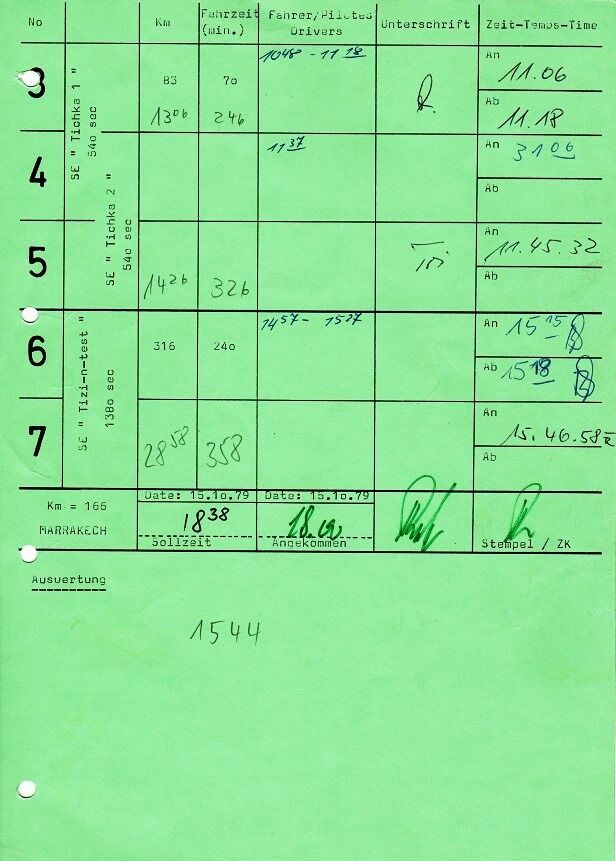 No Km Fahrzeit (min.) Fahrer/Pilotes Drivers Unterschrift Zeit-Temps-Time
3 SE " Tichka 1 " 540 sec
83 70 1048 - 11 18 An 11.06
13 06 246 Ab 11.18
4 SE " Tichka 2 " 540 sec
11 37 An 31 06
Ab
5 An 11.45.32
14 26 326 Ab
6 SE " Tizi-n-test " 1380 sec
316 240 14 57 - 15 27 An 15 15
Ab 15 18
7 An 15.46.58
28 58 358 Ab
Km = 166 Date: 15.10.79 Date: 15.10.79
MARRAKECH 18 38
Sollzeit Angekommen Stempel / ZK
Auswertung
1544